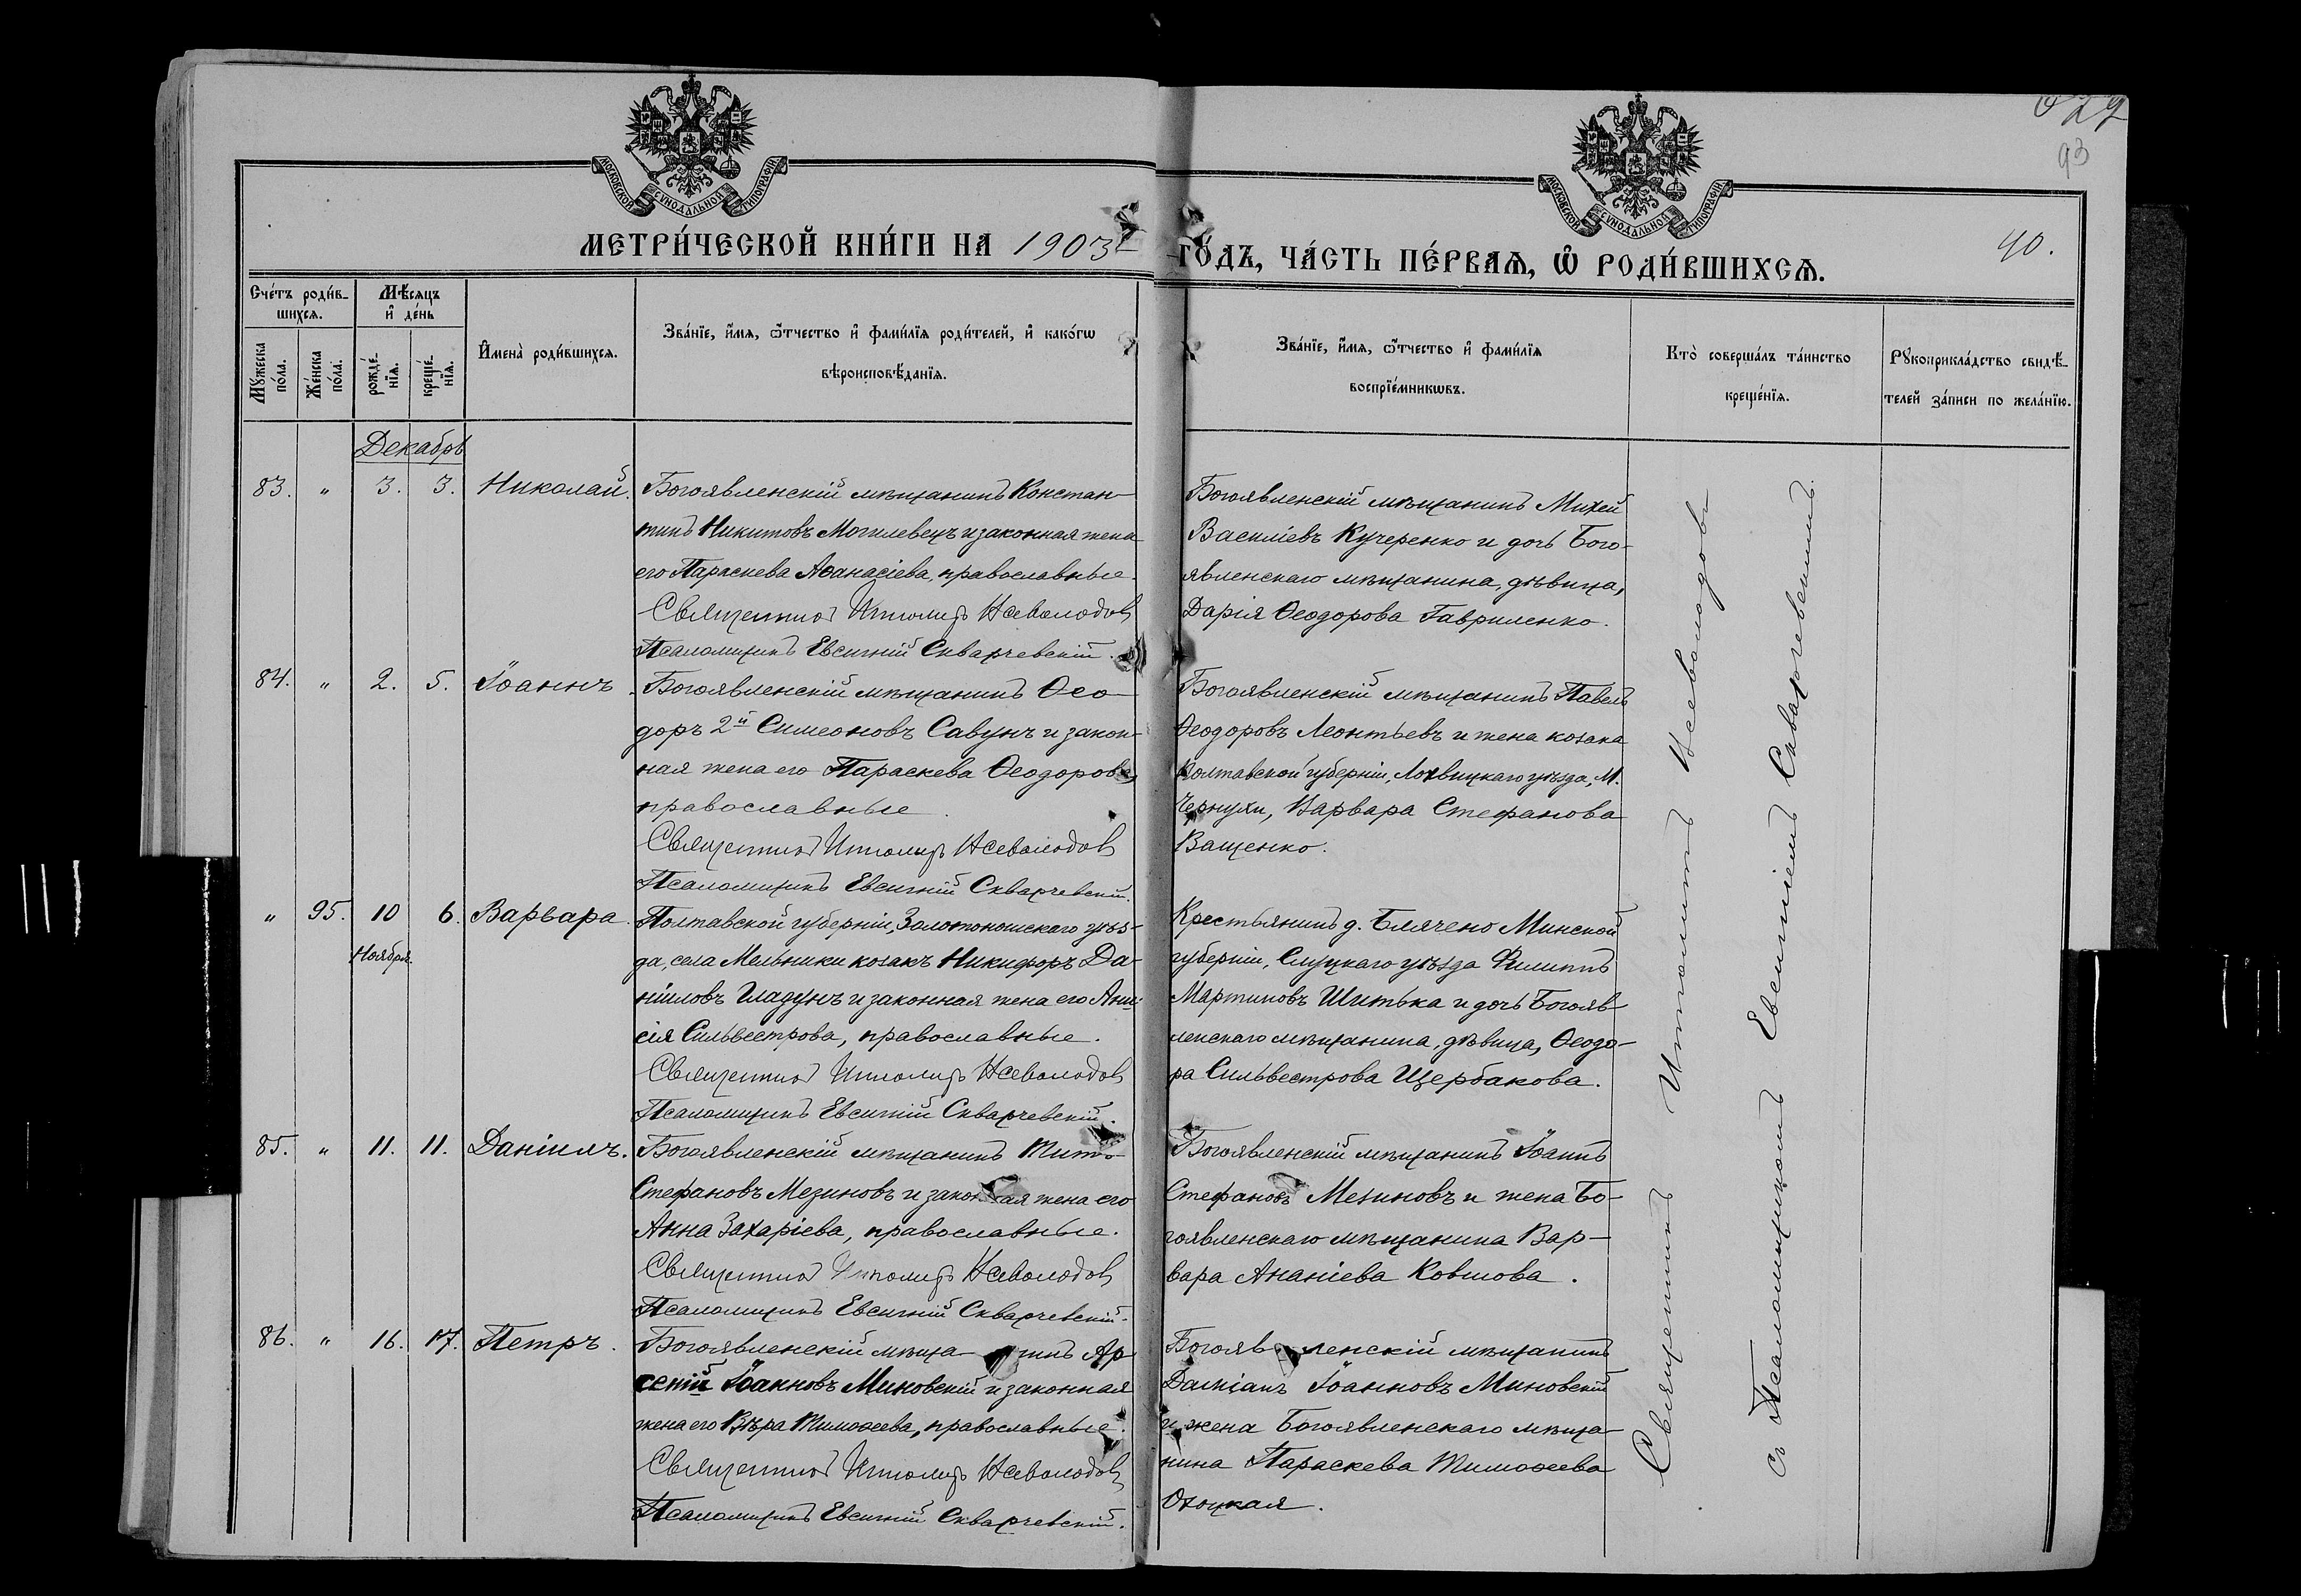 МОСКОВСКОЙ СѴНОДАЛЬНОЙ ТИПОГРАФІИ
МОСКОВСКОЙ СѴНОДАЛЬНОЙ ТИПОГРАФІИ
93
МЕТРИ́ЧЕСКОЙ КНИ́ГИ НА 1903
ГО́ДЪ, ЧА́СТЬ ПЕ́РВАѦ, Ѡ РОДИ́ВШИХСѦ.
40.
Сче́тъ роди́в-
шихсѧ.
Мꙋжеска по́ла.
Же́нска по́ла.
Мѣ́сяцъ и де́нь
рожде́-нїѧ.
креще́-нїѧ.
Имена̀ роди́вшихсѧ.
Зва́нїе, и́мѧ, ѻ́тчество и фами́лїѧ роди́телей, и како́гѡ
вѣроисповѣ́данїѧ.
Зва́нїе, и́мѧ, ѻ́тчество и фами́лїѧ
воспрїе́мникѡвъ.
Кто̀ соверша́лъ та́инство
креще́нїѧ.
Рꙋкоприкла́дство свидѣ́-
телей за́писи по жела́нїю.
Декабрь
83. " 3. 3. Николай.
Богоявленскій мѣщанинъ Констан-
тинъ Никитовъ Могилевецъ и законная жена
его Параскева Аѳанасіева, православные.
Священникъ Ипполитъ Всеволодовъ
Псаломщикъ Евсигній Скварчевскій.
Богоявленскій мѣщанинъ Михей
Василіевъ Кучеренко и дочь Бого-
явленскаго мѣщанина, дѣвица,
Дарія Ѳеодорова Гавриленко.
84. " 2. 5. Іоаннъ
Богоявленскій мѣщанинъ Ѳео-
доръ 2й Симеоновъ Савунъ и закон-
ная жена его Параскева Ѳеодорова,
православные.
Священникъ Ипполитъ Всеволодовъ
Псаломщикъ Евсигній Скварчевскій.
Богоявленскій мѣщанинъ Павелъ
Ѳеодоровъ Леонтьевъ и жена козака
Полтавской губерніи, Лохвицкаго уѣзда, М.
Чернухи, Варвара Стефанова
Ващенко.
" 95. 10 6. Варвара.
Ноября.
Полтавской губерніи, Золотоношскаго уѣз-
да, села Мельники козакъ Никифоръ Да-
ніиловъ Гладунъ и законная жена его Ани-
сія Сильвестрова, православные.
Священникъ Ипполитъ Всеволодовъ
Псаломщикъ Евсигній Скварчевскій.
Крестьянинъ д. Блячено Минской
губерніи, Слуцкаго уѣзда Филиппъ
Мартиновъ Шитька и дочь Богояв-
ленскаго мѣщанина, дѣвица, Ѳеодо-
ра Сильвестрова Щербакова.
85. " 11. 11. Даніилъ.
Богоявленскій мѣщанинъ Титъ
Стефановъ Мезиновъ и законная жена его
Анна Захаріева, православные.
Священникъ Ипполитъ Всеволодовъ
Псаломщикъ Евсигній Скварчевскій.
Богоявленскій мѣщанинъ Іоаннъ
Стефановъ Мезиновъ и жена Бо-
гоявленскаго мѣщанина Вар-
вара Ананіева Ковшова.
86. " 16. 17. Петръ.
Богоявленскій мѣщанинъ Ар-
сеній Іоанновъ Миновскій и законная
жена его Вѣра Тимоѳеева, православные.
Священникъ Ипполитъ Всеволодовъ
Псаломщикъ Евсигній Скварчевскій.
Богоявленскій мѣщанинъ
Даміанъ Іоанновъ Миновскій
и жена Богоявленскаго мѣща-
нина Параскева Тимоѳеева
Охоцкая.
Священникъ Ипполитъ Всеволодовъ
съ Псаломщикомъ Евсигніемъ Скварчевскимъ.